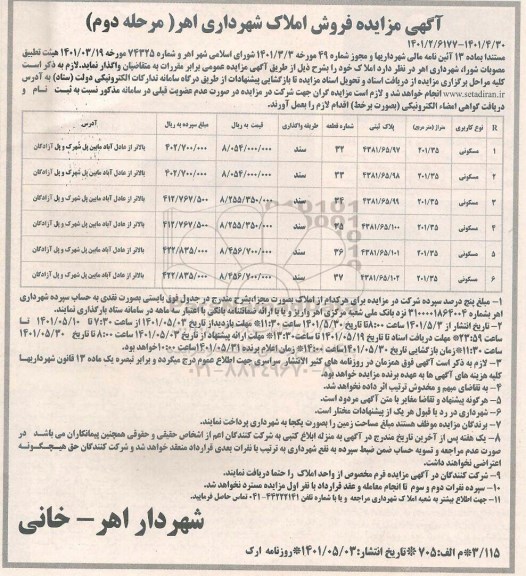 آگهی مزایده فروش املاک شهرداری اهر( مرحله دوم)
۱۴۰۱/۲/۶۱۷۷-۱۴۰۱/۴/۳۰
مستندا بماده ۱۳ آئین نامه مالی شهرداریها و مجوز شماره ۴۹ مورخه ۱۴۰۱/۳/۳ شورای اسلامی شهر اهر و شماره ۷۴۳۲۵ مورخه ۱۴۰۱/۰۳/۱۹ هیئت تطبیق
مصوبات شورا، شهرداری اهر در نظر دارد املاک خود را بشرح ذیل از طریق آگهی مزایده عمومی برابر مقررات به متقاضیان واگذار نماید.لازم به ذکر است
کلیه مراحل برگزاری مزایده از دریافت اسناد و تحویل اسناد مزایده تا بازگشایی پیشنهادات از طریق درگاه سامانه تدارکات الکترونیکی دولت (ستاد) به آدرس
www.setadiran.ir انجام خواهد شد و لازم است مزایده گران جهت شرکت در مزایده در صورت عدم عضویت قبلی در سامانه مذکور نسبت به ثبت نام و
دریافت گواهی امضاء الکترونیکی (بصورت برخط) اقدام لازم را بعمل آورند.
R نوع کاربری متراژ (متر مربع) پلاک ثبتی شماره قطعه طریقه واگذاری قیمت به ریال مبلغ سپرده به ریال آدرس
۱ مسکونی ۲۰۱/۳۵ ۴۳۸۱/۶۵/۹۷ ۳۲ سند ۸/۰۵۴/۰۰۰/۰۰۰ ۴۰۲/۷۰۰/۰۰۰ بالاتر از عادل آباد مابین پل شهرک و پل آزادگان
۲ مسکونی ۲۰۱/۳۵ ۴۳۸۱/۶۵/۹۸ ۳۳ سند ۸/۰۵۴/۰۰۰/۰۰۰ ۴۰۲/۷۰۰/۰۰۰ بالاتر از عادل آباد مابین پل شهرک و پل آزادگان
۳ مسکونی ۲۰۱/۳۵ ۴۳۸۱/۶۵/۹۹ ۳۴ سند ۸/۲۵۵/۳۵۰/۰۰۰ ۴۱۲/۷۶۷/۵۰۰ بالاتر از عادل آباد مابین پل شهرک و پل آزادگان
۴ مسکونی ۲۰۱/۳۵ ۴۳۸۱/۶۵/۱۰۰ ۳۵ سند ۸/۲۵۵/۳۵۰/۰۰۰ ۴۱۲/۷۶۷/۵۰۰ بالاتر از عادل آباد مابین پل شهرک و پل آزادگان
۵ مسکونی ۲۰۱/۳۵ ۴۳۸۱/۶۵/۱۰۱ ۳۶ سند ۸/۴۵۶/۷۰۰/۰۰۰ ۴۲۲/۸۳۵/۰۰۰ بالاتر از عادل آباد مابین پل شهرک و پل آزادگان
۶ مسکونی ۲۰۱/۳۵ ۴۳۸۱/۶۵/۱۰۲ ۳۷ سند ۸/۴۵۶/۷۰۰/۰۰۰ ۴۲۲/۸۳۵/۰۰۰ بالاتر از عادل آباد مابین پل شهرک و پل آزادگان
۱- مبلغ پنج درصد سپرده شرکت در مزایده برای هرکدام از املاک بصورت مجزا،بشرح مندرج در جدول فوق بایستی بصورت نقدی به حساب سپرده شهرداری
اهر بشماره ۳۱۰۰۰۰۱۸۶۴۰۰۴ نزد بانک ملی شعبه مرکزی اهر واریز و یا با ارائه ضمانتنامه بانکی با اعتبار سه ماهه در سامانه ستاد بارگذاری نمایند.
۲- تاریخ انتشار از ۱۴۰۱/۵/۳ ساعت ۸:۰۰ تا تاریخ ۱۴۰۱/۵/۲۰ ساعت ۱۱:۳۰* مهلت بازدیداز تاریخ ۱۴۰۱/۰۵/۰۳ از ساعت ۷:۳۰ تا ۱۴۰۱/۰۵/۱۰ تا
ساعت ۲۳:۵۹* مهلت دریافت اسناد تا تاریخ ۱۴۰۱/۰۵/۱۹ تا ساعت ۱۳:۳۰* مهلت ارائه پیشنهاد از تاریخ ۱۴۰۱/۰۵/۰۳ ساعت ۸:۰۰ تا تاریخ ۱۴۰۱/۰۵/۳۰
ساعت ۱۱:۳۰* زمان بازگشایی تاریخ ۱۴۰۱/۰۵/۳۰ ساعت ۱۴:۰۰* زمان اعلام برنده ۱۴۰۱/۰۵/۳۱ ساعت ۱۰:۰۰ خواهد بود.
۳- لازم به ذکر است آگهی فوق همزمان در روزنامه های کثیر الانتشار سراسری جهت اطلاع عموم درج میگردد و برابر تبصره یک ماده ۱۳ قانون شهرداریها
کلیه هزینه های آگهی ها به عهده برنده مزایده خواهد بود.
۴- به تقاضای مبهم و مخدوش ترتیب اثر داده نخواهد شد.
۵- هرگونه پیشنهاد و تقاضا مغایر با متن آگهی مردود است.
۶- شهرداری در رد یا قبول هر یک از پیشنهادات مختار است.
۷- برندگان مزایده موظف هستند مبلغ مساحت زمین را بصورت یکجا به شهرداری پرداخت نمایند.
۸- یک هفته پس از آخرین تاریخ مندرج در آگهی به منزله ابلاغ کتبی به شرکت کنندگان اعم از اشخاص حقیقی و حقوقی همچنین پیمانکاران می باشد در
صورت عدم مراجعه و تسویه حساب ضمن ضبط سپرده به نفع شهرداری به ترتیب با نفرات بعدی قرارداد منعقد خواهد شد و شرکت کنندگان حق هیچگونه
اعتراضی نخواهند داشت.
۹- شرکت کنندگان در آگهی مزایده فرم مخصوص از واحد املاک را حتما دریافت نمایند.
۱۰- سپرده نفرات دوم و سوم تا انجام معامله و عقد قرارداد با نفر اول مزایده مسترد نخواهد شد.
۱۱- جهت اطلاع بیشتر به شعبه املاک شهرداری مراجعه و یا با شماره تلفن ۴۴۲۲۲۱۴۱-۰۴۱ تماس حاصل فرمایید.
شهردار اهر- خانی
۳/۱۱۵*م الف:۷۰۵ *تاریخ انتشار:۱۴۰۱/۰۵/۰۳*روزنامه ارک